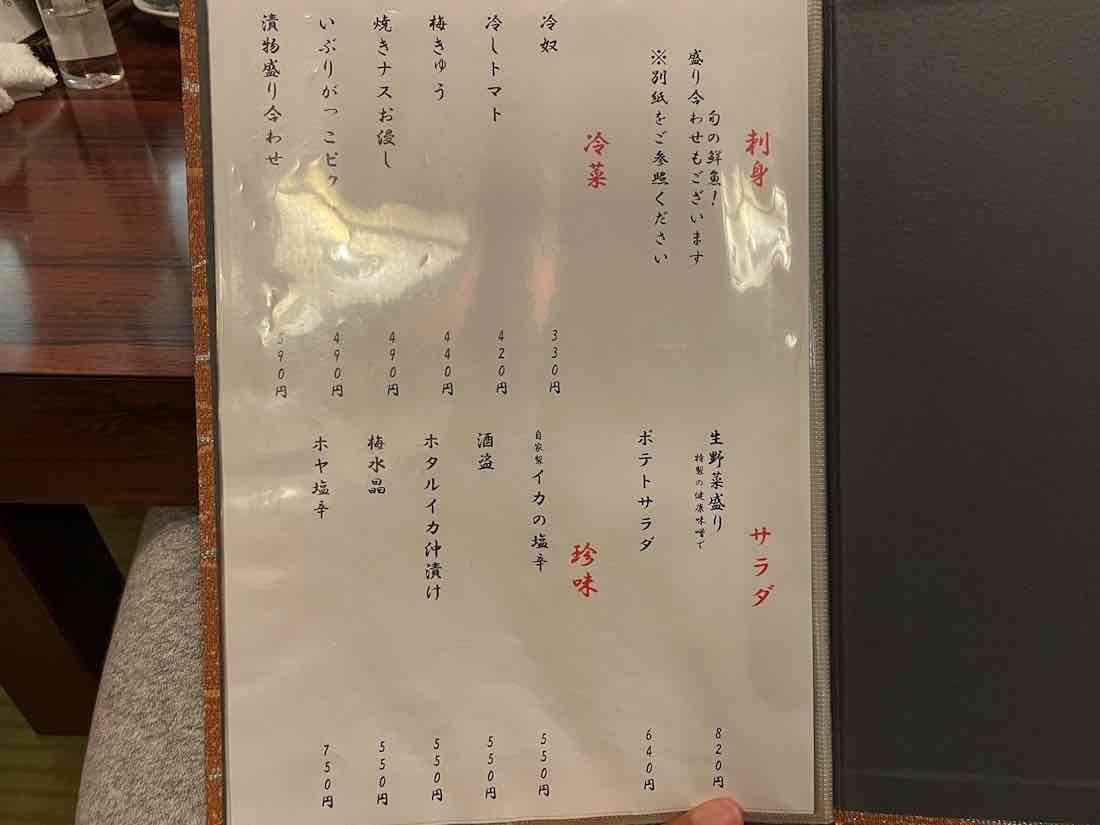 刺身
旬の鮮魚!
盛り合わせもございます
※別紙をご参照ください
冷菜
冷奴
330円
冷しトマト
420円
梅きゅう
440円
焼きナスお浸し
490円
いぶりがっこピク
490円
漬物盛り合わせ
590円
サラダ
生野菜盛り
特製の健康味噌で
820円
ポテトサラダ
640円
珍味
自家製イカの塩辛
550円
酒盗
550円
ホタルイカ沖漬け
550円
梅水晶
550円
ホヤ塩辛
750円